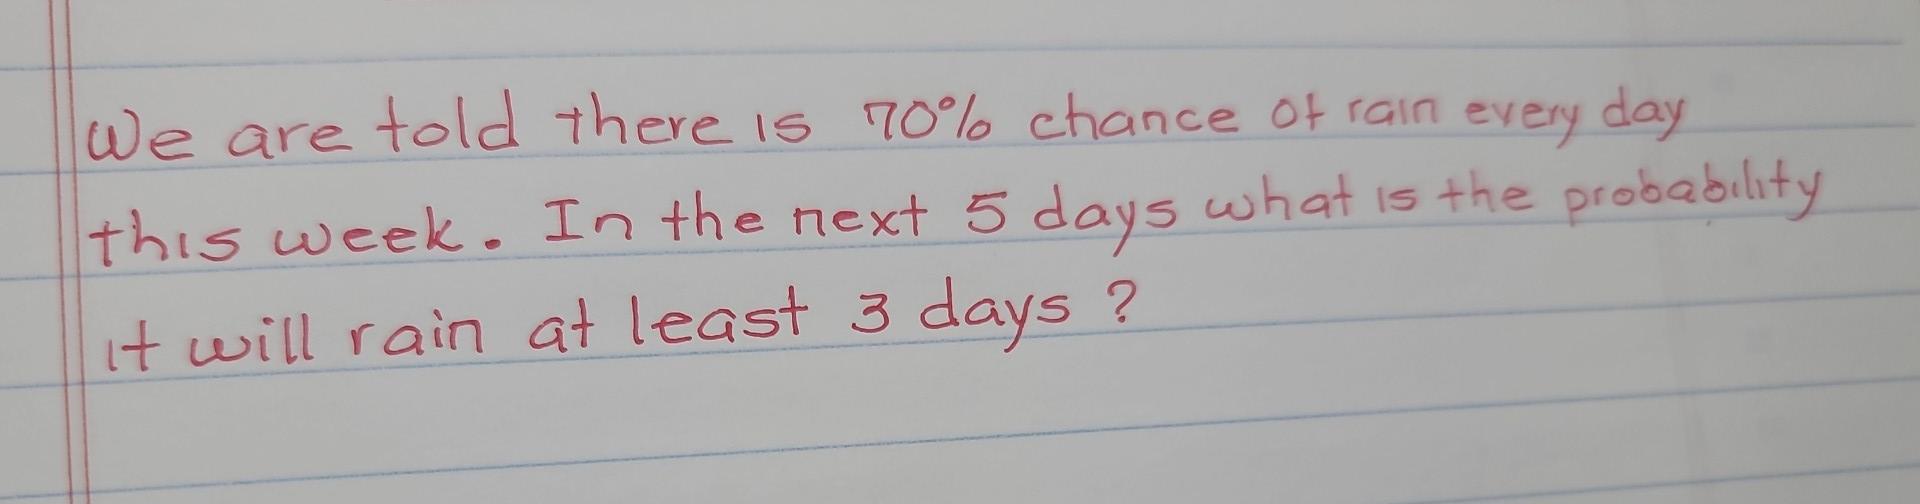 We are told there is 70% chance of rain every day
this week. In the next 5 days what is the probability
it will rain at least 3 days ?